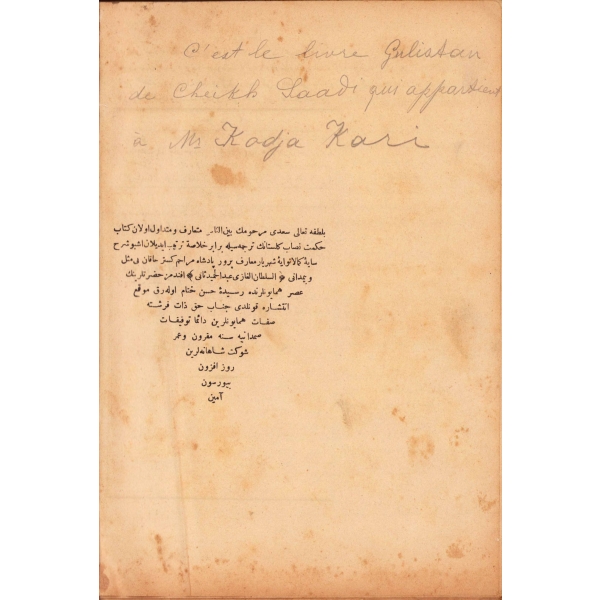 C'est le livre Gulistan
de Cheikh Saadi qui appartient
à Mr Kodja Kari
بلطفه تعالى سعدى مرحومك بين الناس متعارف و متداول اولان كتاب
حكمت نصاب كلستانك ترجمه سيله برابر خلاصة ترتيب ايديلان اشبو شرح
ساية كمالاتواية شهريار معارف پرور پادشاه مراحم كستر خاقان بى مثل
و بيمدانى ﴿ السلطان الغازى عبد الحميد ثانى ﴾ افندمز حضرتلرينك
عصر همايونلرنده رسيدة حسن ختام اوله رق موقع
انتشاره قونلدى جناب حق ذات فرشته
صفات همايونلرين دائما توفيقات
صمدانيه سنه مقرون و عمر
شوكت شاهانه لرين
روز افزون
بيورسون
آمين